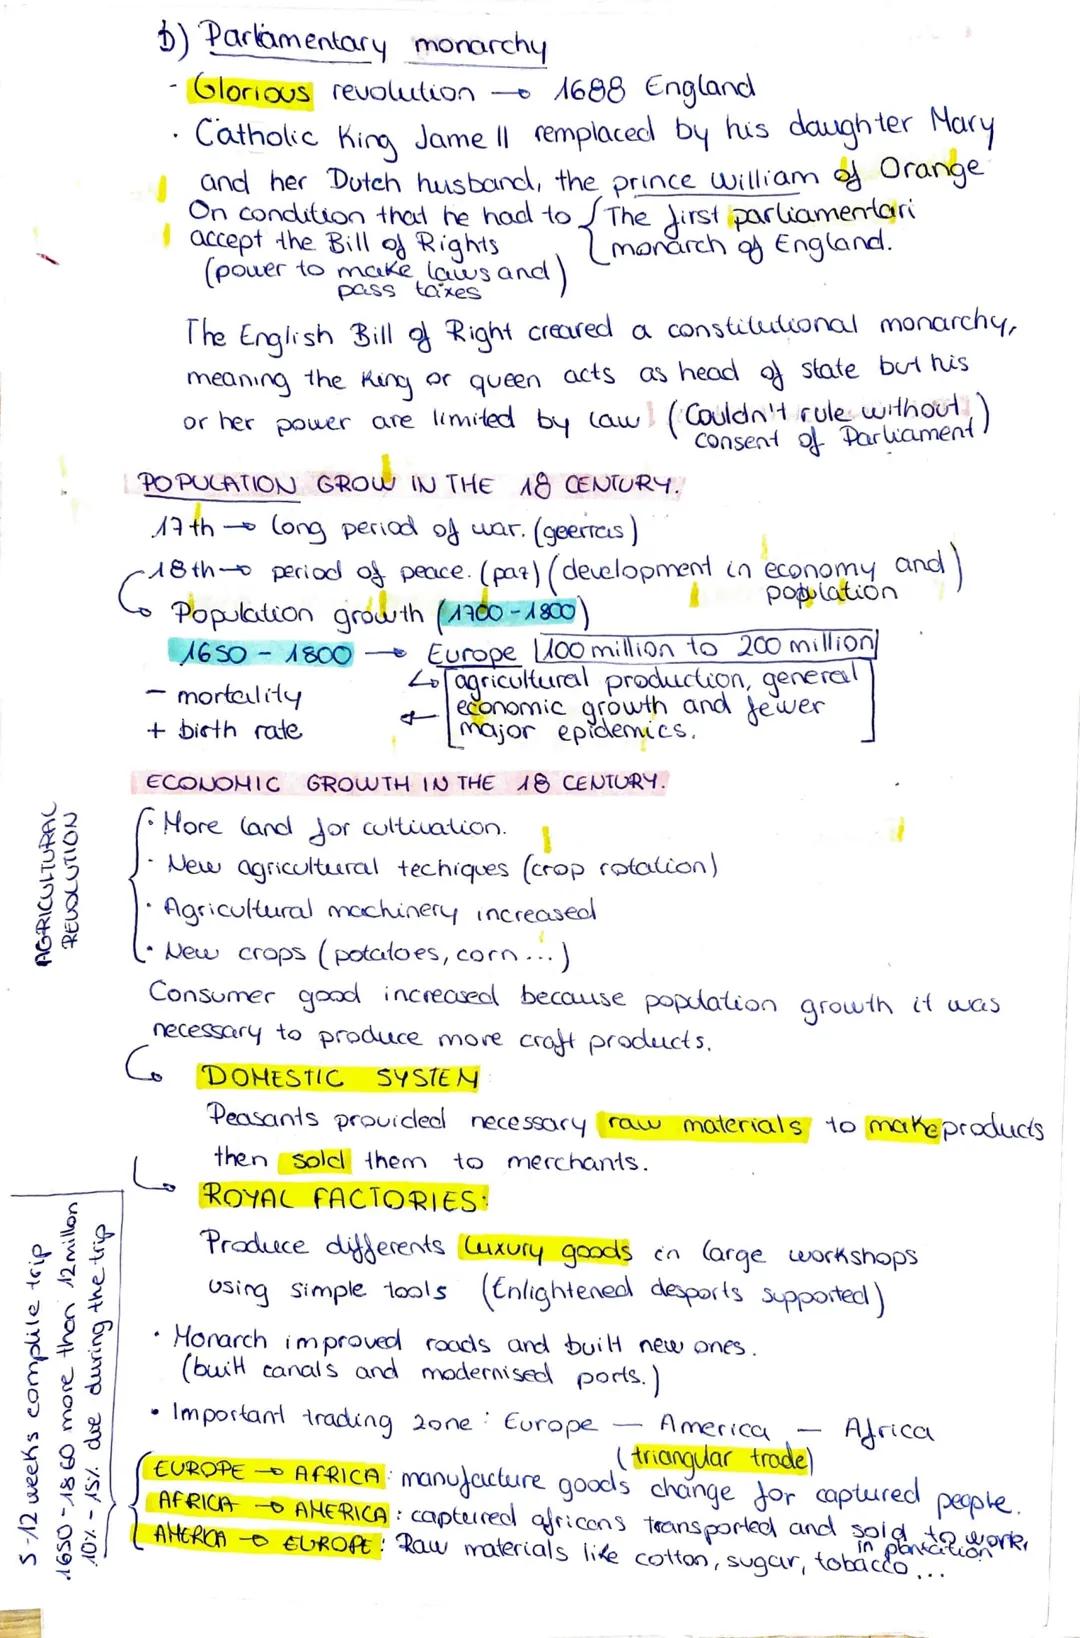 b) Parliamentary monarchy
- Glorious revolution → 1688 England
· Catholic King Jame II remplaced by his daughter Mary
and her Dutch husband, the prince william of Orange
On condition that he had to { The first parliamentari
accept the Bill of Rights monarch of England.
(power to make laws and)
pass taxes
The English Bill of Right creared a constitutional monarchy,
meaning the King or queen acts as head of state but his
or her power are limited by law (Couldn't rule without)
consent of Parliament
POPULATION GROW IN THE 18 CENTURY.
17th → long period of war. (geerras)
18th → period of peace. (paz) (development in economy and)
population
Population growth (1700-1800)
1650 - 1800 → Europe 100 million to 200 million
- mortality
+ birth rate
agricultural production, general
economic growth and fewer
major epidemics.
ECONOMIC GROWTH IN THE 18 CENTURY.
AGRICULTURAL
REVOLUTION
· More land for cultivation.
· New agricultural techiques (crop rotation)
· Agricultural machinery increased
· New crops (potatoes, corn...)
Consumer good increased because population growth it was
necessary to produce more craft products.
DOMESTIC SYSTEM
Peasants provided necessary raw materials to make products
then sold them to merchants.
ROYAL FACTORIES:
Produce differents luxury goods in large workshops
using simple tools (Enlightened desports supported)
· Monarch improved roads and built new ones.
(built canals and modernised ports.)
· Important trading zone: Europe — America — Africa
(triangular trade)
EUROPE → AFRICA: manufacture goods change for captured people.
AFRICA → AMERICA: captured africans transported and sold to work,
in plantation
AMERICA → EUROPE: Raw materials like cotton, sugar, tobacco...
5-12 weeks complile trip
1650-1860 more than 12 millon
10% - 15% die during the trip